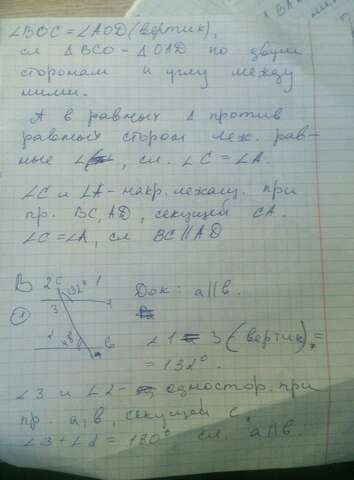 ∠BOC = ∠AOD (вертик),
сл Δ BCO = Δ OAD по двум
сторонам и углу между
ними.
А в равных Δ против
равных сторон леж. рав-
ные ∠, сл. ∠C = ∠A.
∠C и ∠A - накр. лежащ. при
пр. BC, AD, секущей CA.
∠C = ∠A, сл BC || AD
В 2 C 132° 1
Док: a || в.
① 3
2 48° в
∠1 = 3 (вертик) =
= 132°.
∠3 и ∠2 - одностор. при
пр. а, в, секущей с.
∠3 + ∠2 = 180°, сл. a || в.